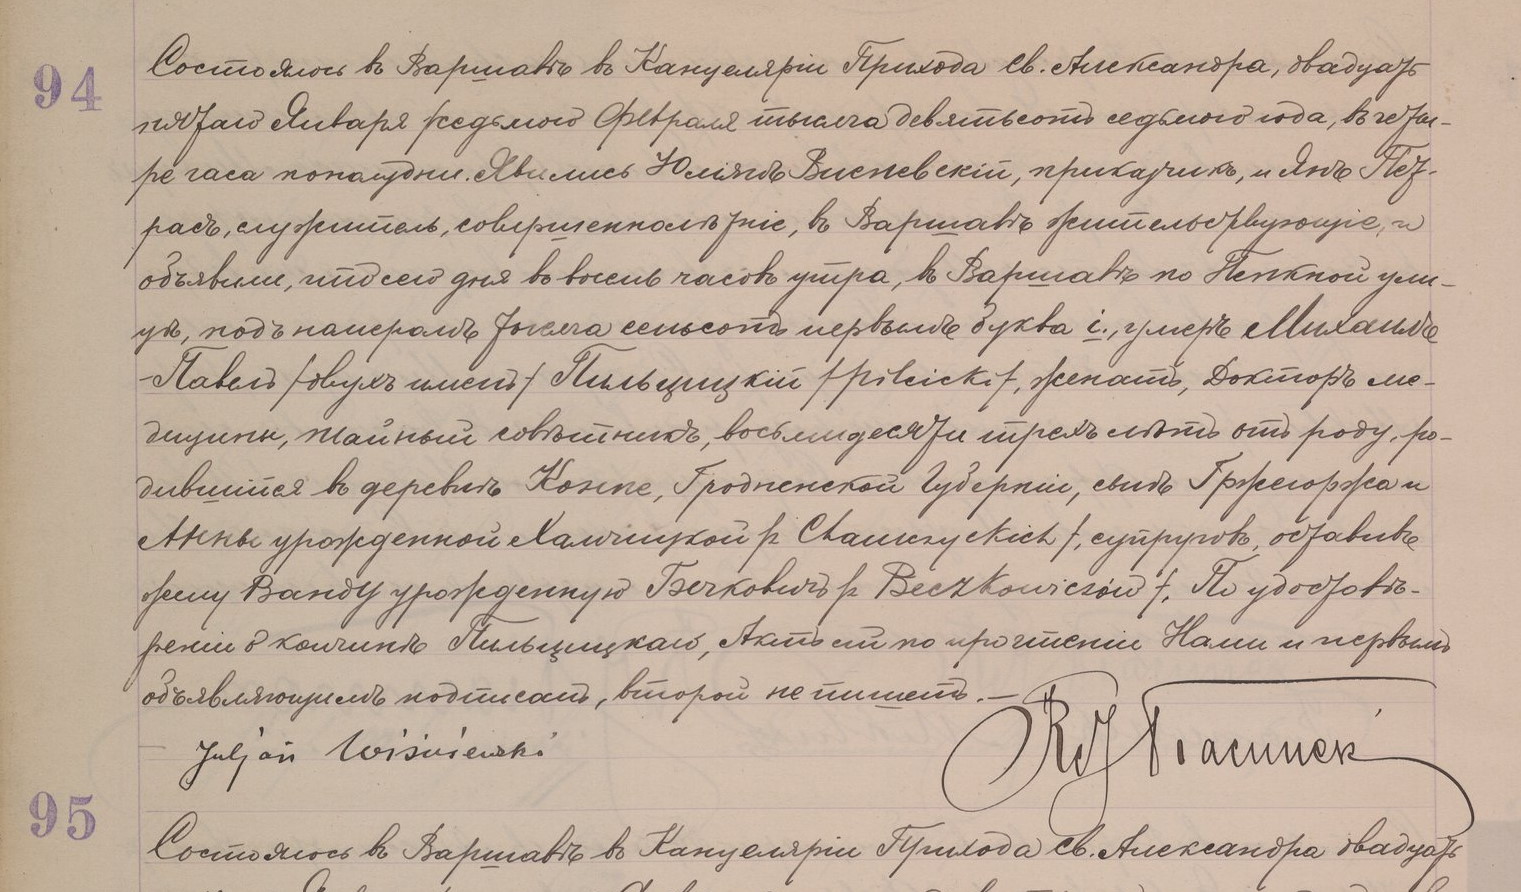 94
Состоялось въ Варшавѣ въ Канцеляріи Прихода Св. Александра, двадцать
пятаго Января /седьмого Февраля тысяча девятьсотъ седьмого года, въ четы-
ре часа пополудни. Явились Юліянъ Висневскій, приказчикъ, и Янъ Пет-
расъ, служитель, совершеннолѣтніе, въ Варшавѣ жительствующіе, и
объявили, что сего дня въ восемь часовъ утра, въ Варшавѣ по Пенкной ули-
цѣ, подъ номеромъ тысяча семьсотъ первымъ буква i., умеръ Михаилъ
-Павелъ /двухъ именъ/ Пильцицкій /Pilcicki/, женатъ, Докторъ ме-
дицины, тайный совѣтникъ, восьмидесяти трехъ лѣтъ отъ роду, ро-
дившійся въ деревнѣ Гродненской Губерніи, сынъ Гржегоржа и
Анны урожденной /z, супруговъ, оставивъ
жену Ванду урожденную Бечковичъ /z Beczkowiczów/. По удостовѣ-
реніи о кончинѣ Пильцицкаго, Актъ сей по прочтеніи Нами и первымъ
объявляющимъ подписанъ, второй не пишетъ.—
Juljan Wiśniewski
95
Состоялось въ Варшавѣ въ Канцеляріи Прихода Св. Александра двадцать